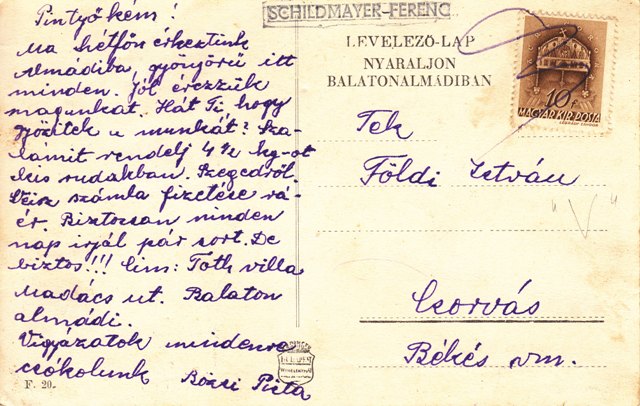 Pintyőkém!
Ma hétfőn érkeztünk
Almádiba, gyönyörű itt
minden. Jól érezzük
magunkat. Hát Ti hogy
győzitek a munkát? Sza-
lámit rendelj 4 1/2 kg-ot
kis rudakban. Szegedről.
Veisz számla fizetése rá-
ér. Biztosan minden
nap irjál pár sort. De
biztos!!! Cim: Tóth villa
Madács ut. Balaton
almádi.
Vigyázatok mindenre
csókolunk Pista
F. 20.
SCHILDMAYER-FERENC
LEVELEZŐ-LAP
NYARALJON
BALATONALMÁDIBAN
10f
MAGYAR KIR. POSTA
Tek
Földi István
"V"
Csorvás
Békés vm.